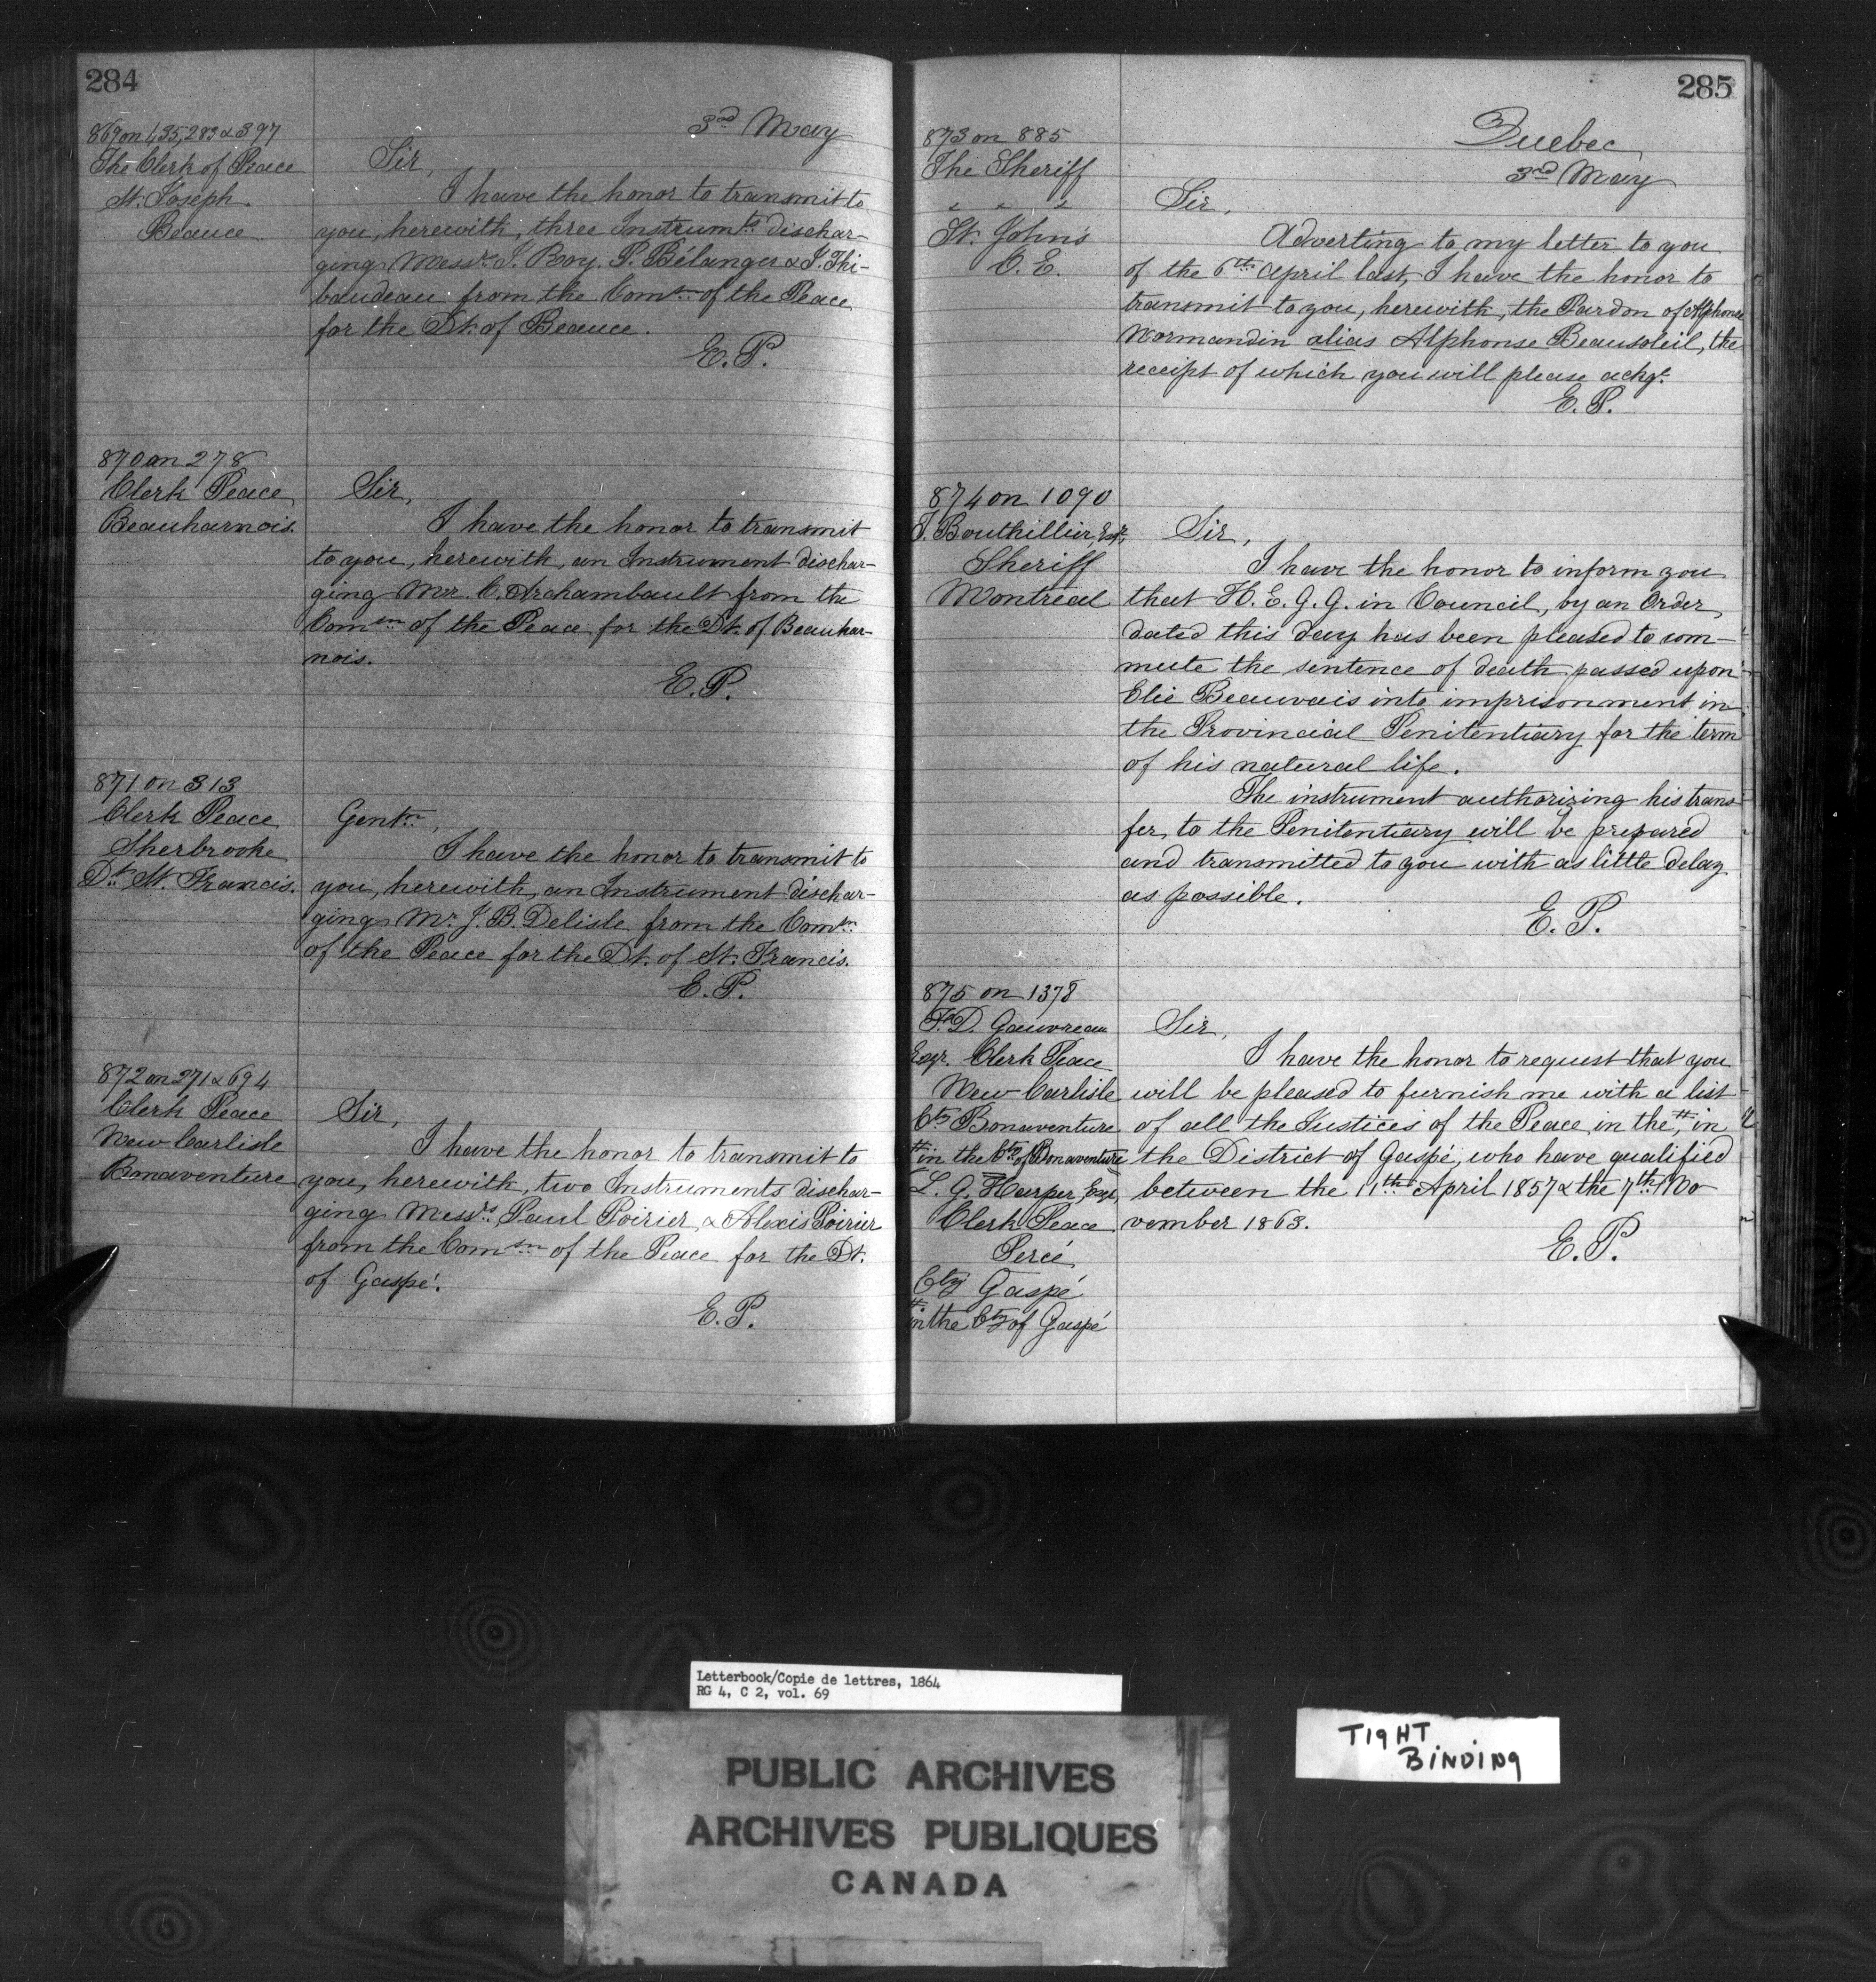 284
3rd May
869 on 1,35,283 & 397
The Clerk of Peace
St. Joseph.
Beauce
Sir,
I have the honor to transmit to
you, herewith, three Instrumts dischar-
ging Messrs J. Roy, P. Bélanger & J. Thi-
baudeau from the Comsn of the Peace
for the Dt. of Beauce.
E. P.
870 on 278
Clerk Peace
Beauharnois.
Sir,
I have the honor to transmit
to you, herewith, an Instrument dischar-
ging Mr. C. Archambault from the
Comsn of the Peace for the Dt. of Beauhar-
nois.
E. P.
871 on 313
Clerk Peace
Sherbrooke
Dt. St. Francis.
Gentn,
I have the honor to transmit to
you, herewith, an Instrument dischar-
ging Mr. J. B. Delisle from the Comsn
of the Peace for the Dt. of St. Francis.
E. P.
872 on 271 & 694
Clerk Peace
New Carlisle
Bonaventure
Sir,
I have the honor to transmit to
you, herewith, two Instruments dischar-
ging Messrs Paul Poirier, & Alexis Poirier
from the Comsn of the Peace for the Dt.
of Gaspé.
E. P.
285
Quebec
3rd May
873 on 885
The Sheriff
" " "
St. John's
C. E.
Sir,
Adverting to my letter to you
of the 6th April last, I have the honor to
transmit to you, herewith, the Pardon of Alphonse
Normandin alias Alphonse Beausoleil, the
receipt of which you will please ackge.
E. P.
874 on 1090
T. Bouthillier, Esqr,
Sheriff
Montreal
Sir,
I have the honor to inform you
that H. E. G. G. in Council, by an Order
dated this day has been pleased to com-
mute the sentence of death passed upon
Elie Beauvais into imprisonment in
the Provincial Penitentiary for the term
of his natural life.
The instrument authorizing his trans-
fer to the Penitentiary will be prepared
and transmitted to you with as little delay
as possible.
E. P.
875 on 1378
D. Gauvreau
Esqr. Clerk Peace
New Carlisle
Cty Bonaventure
# in the Cty of Bonaventure
L. G. Harper, Esqr,
Clerk Peace
Percé
Cty Gaspé
# in the Cty of Gaspé
Sir,
I have the honor to request that you
will be pleased to furnish me with a list
of all the Justices of the Peace, in the #, in
the District of Gaspé, who have qualified
between the 11th April 1857 & the 7th No
vember 1863.
E. P.
Letterbook/Copie de lettres, 1864
RG 4, C 2, vol. 69
TIGHT
BINDING
PUBLIC ARCHIVES
ARCHIVES PUBLIQUES
CANADA